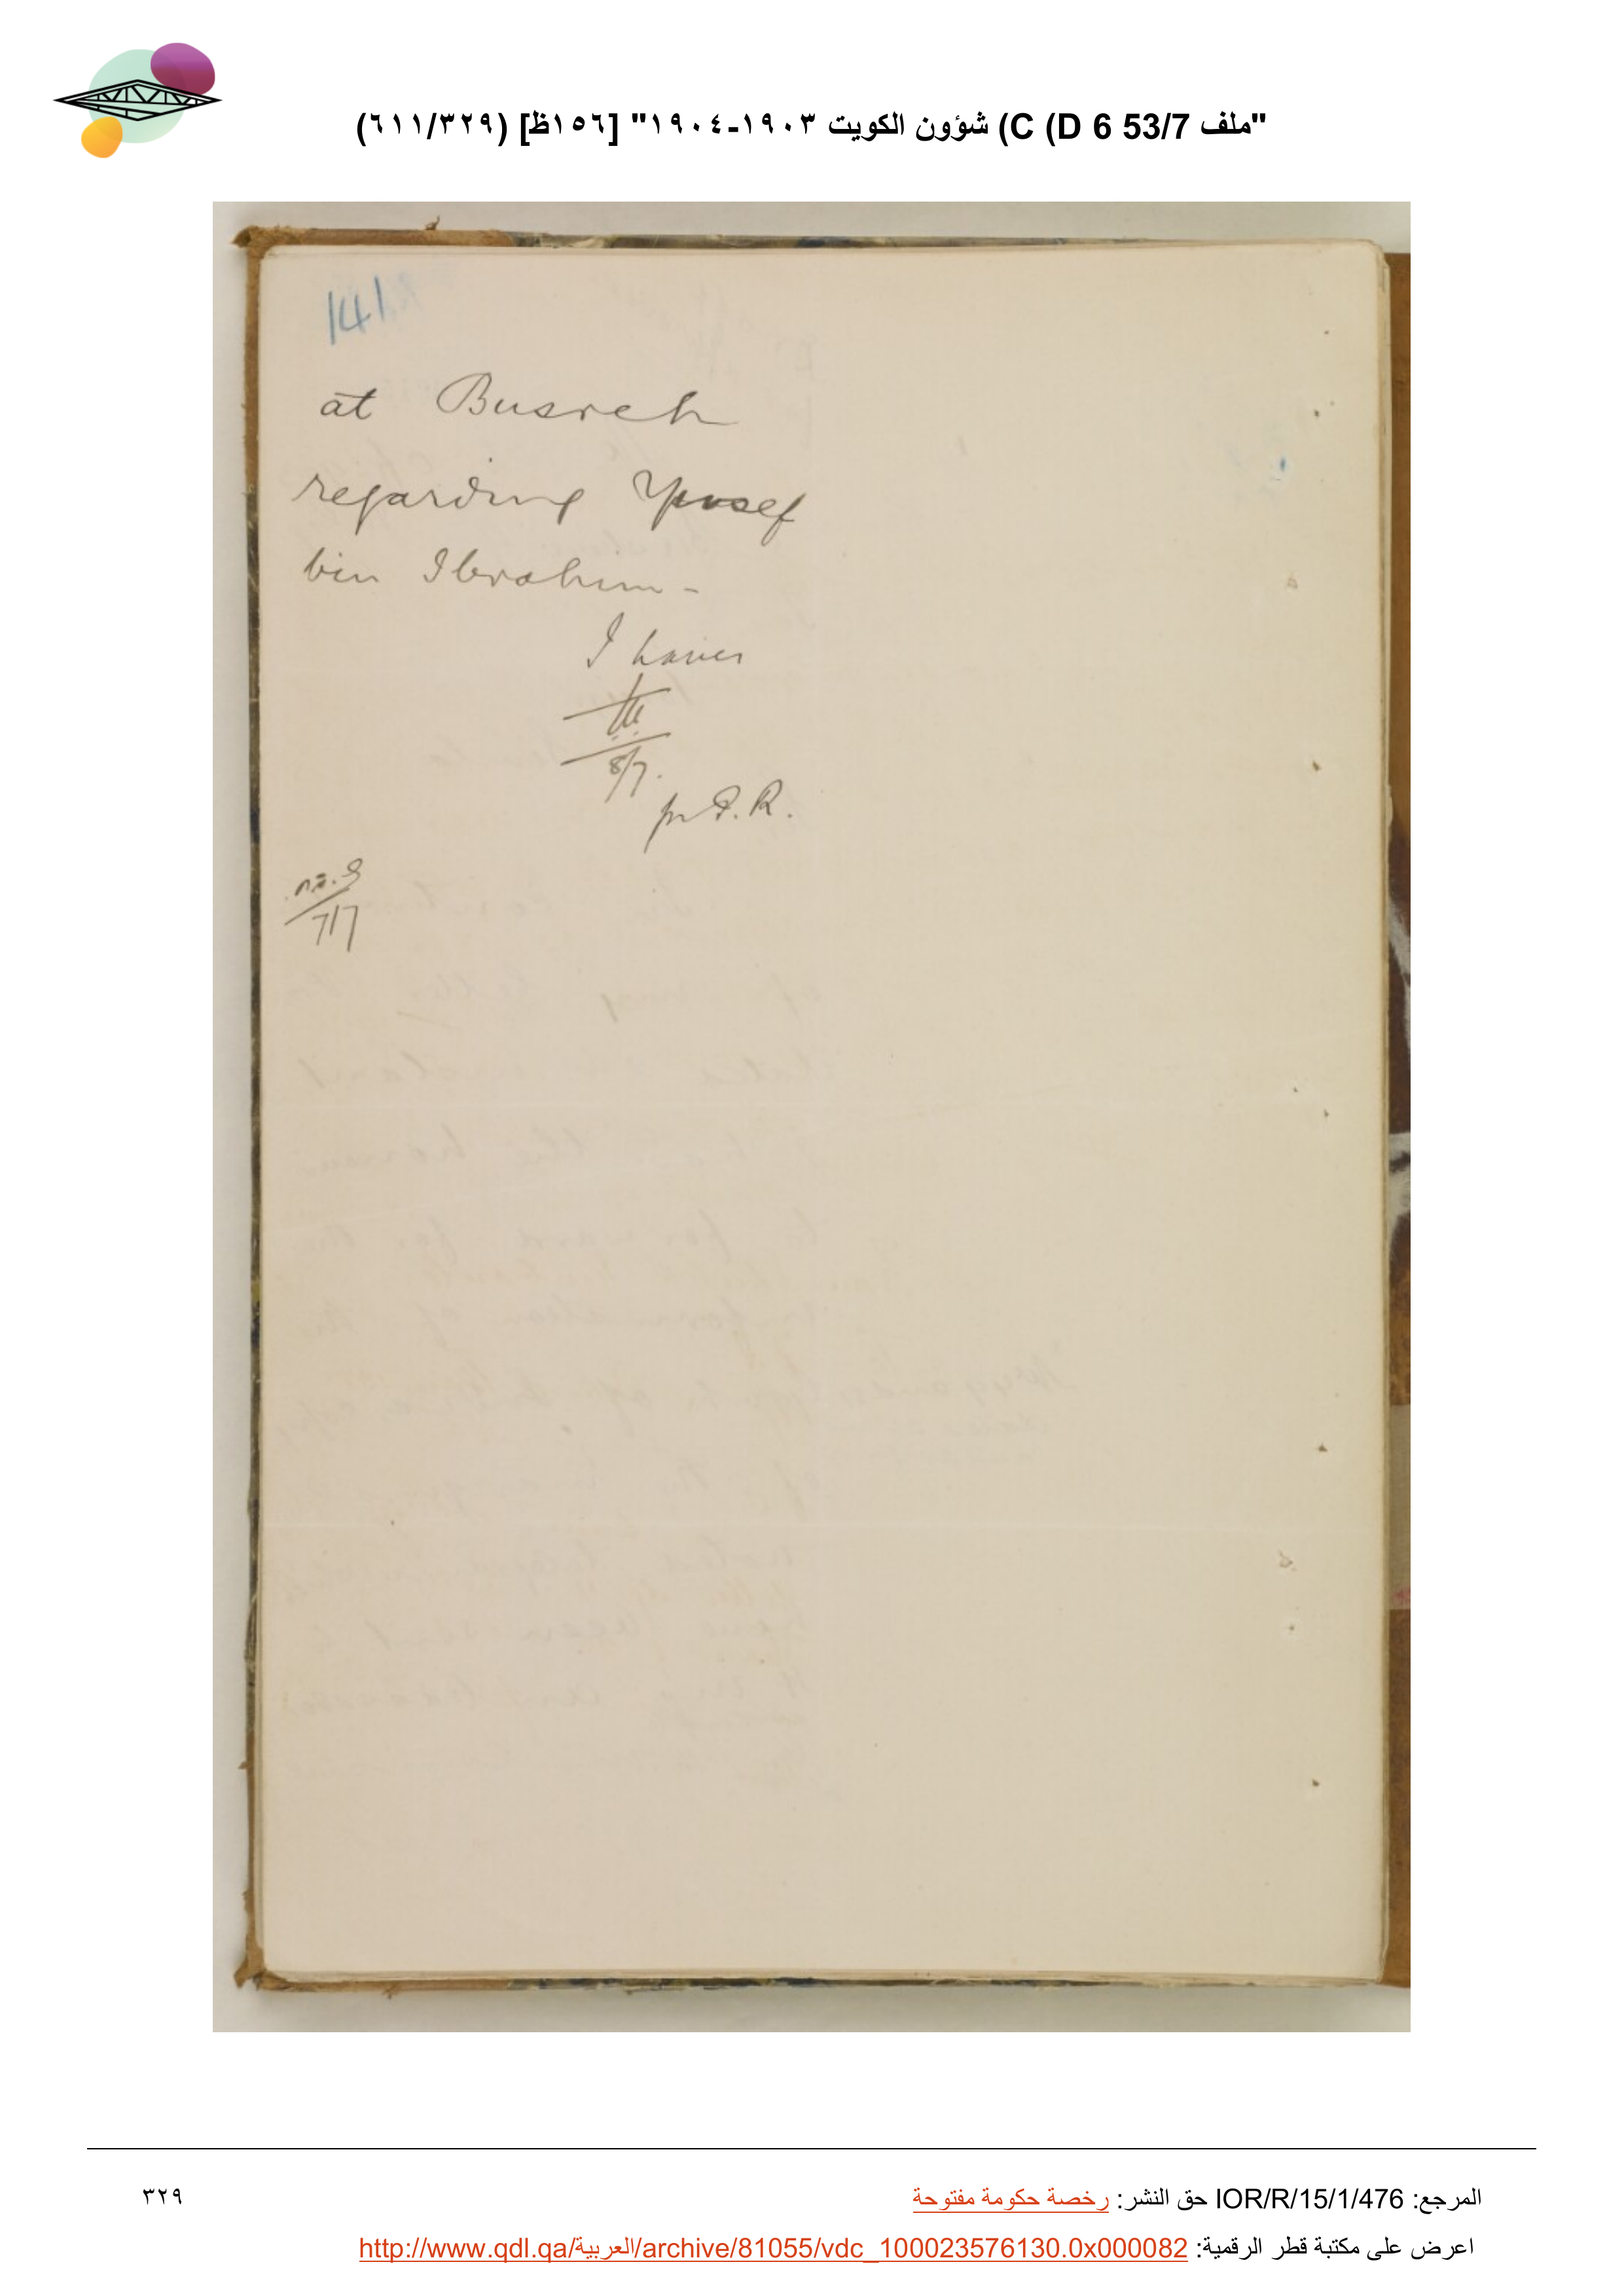 "ملف 53/7 C (D 6) شؤون الكويت ١٩٠٣-١٩٠٤" [١٥٦ظ] (٦١١/٣٢٩)
141.
at Busreh
regarding Yusef
bin Ibrahim -
I have
8/7.
7/7
المرجع: IOR/R/15/1/476 حق النشر: رخصة حكومة مفتوحة
٣٢٩
اعرض على مكتبة قطر الرقمية: http://www.qdl.qa/العربية/archive/81055/vdc_100023576130.0x000082